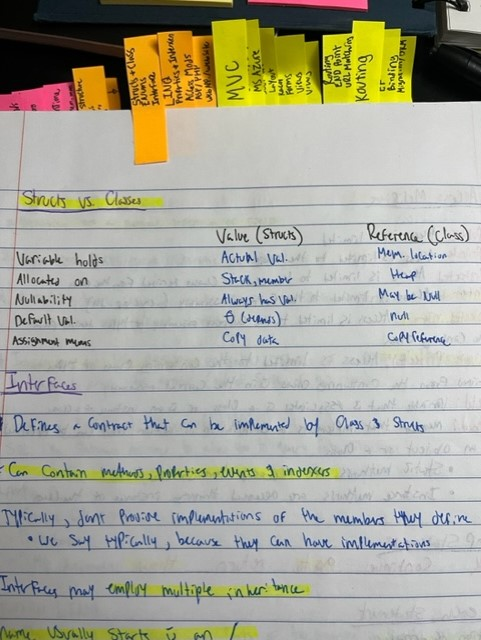 Structs + Class
Enums
Interface
LINQ
MVC
MS Azure
Layout
Forms
Views
Routing
END Point
URL Matching
Routing
Binding
Structs vs. Classes
Value (Structs) Reference (Class)
Variable holds Actual Val. Mem. location
Allocated on Stack, member Heap
Nullability Always has Val. May be Null
Default Val. 0 (depends) null
Assignment means Copy data Copy reference
Interfaces
Defines a Contract that can be implemented by Class & Structs
Can Contain methods, properties, events & indexers
Typically, dont Provide implementations of the members they define
• We say typically, because they can have implementations
Interfaces may employ multiple inheritance
Name Usually Starts w an I